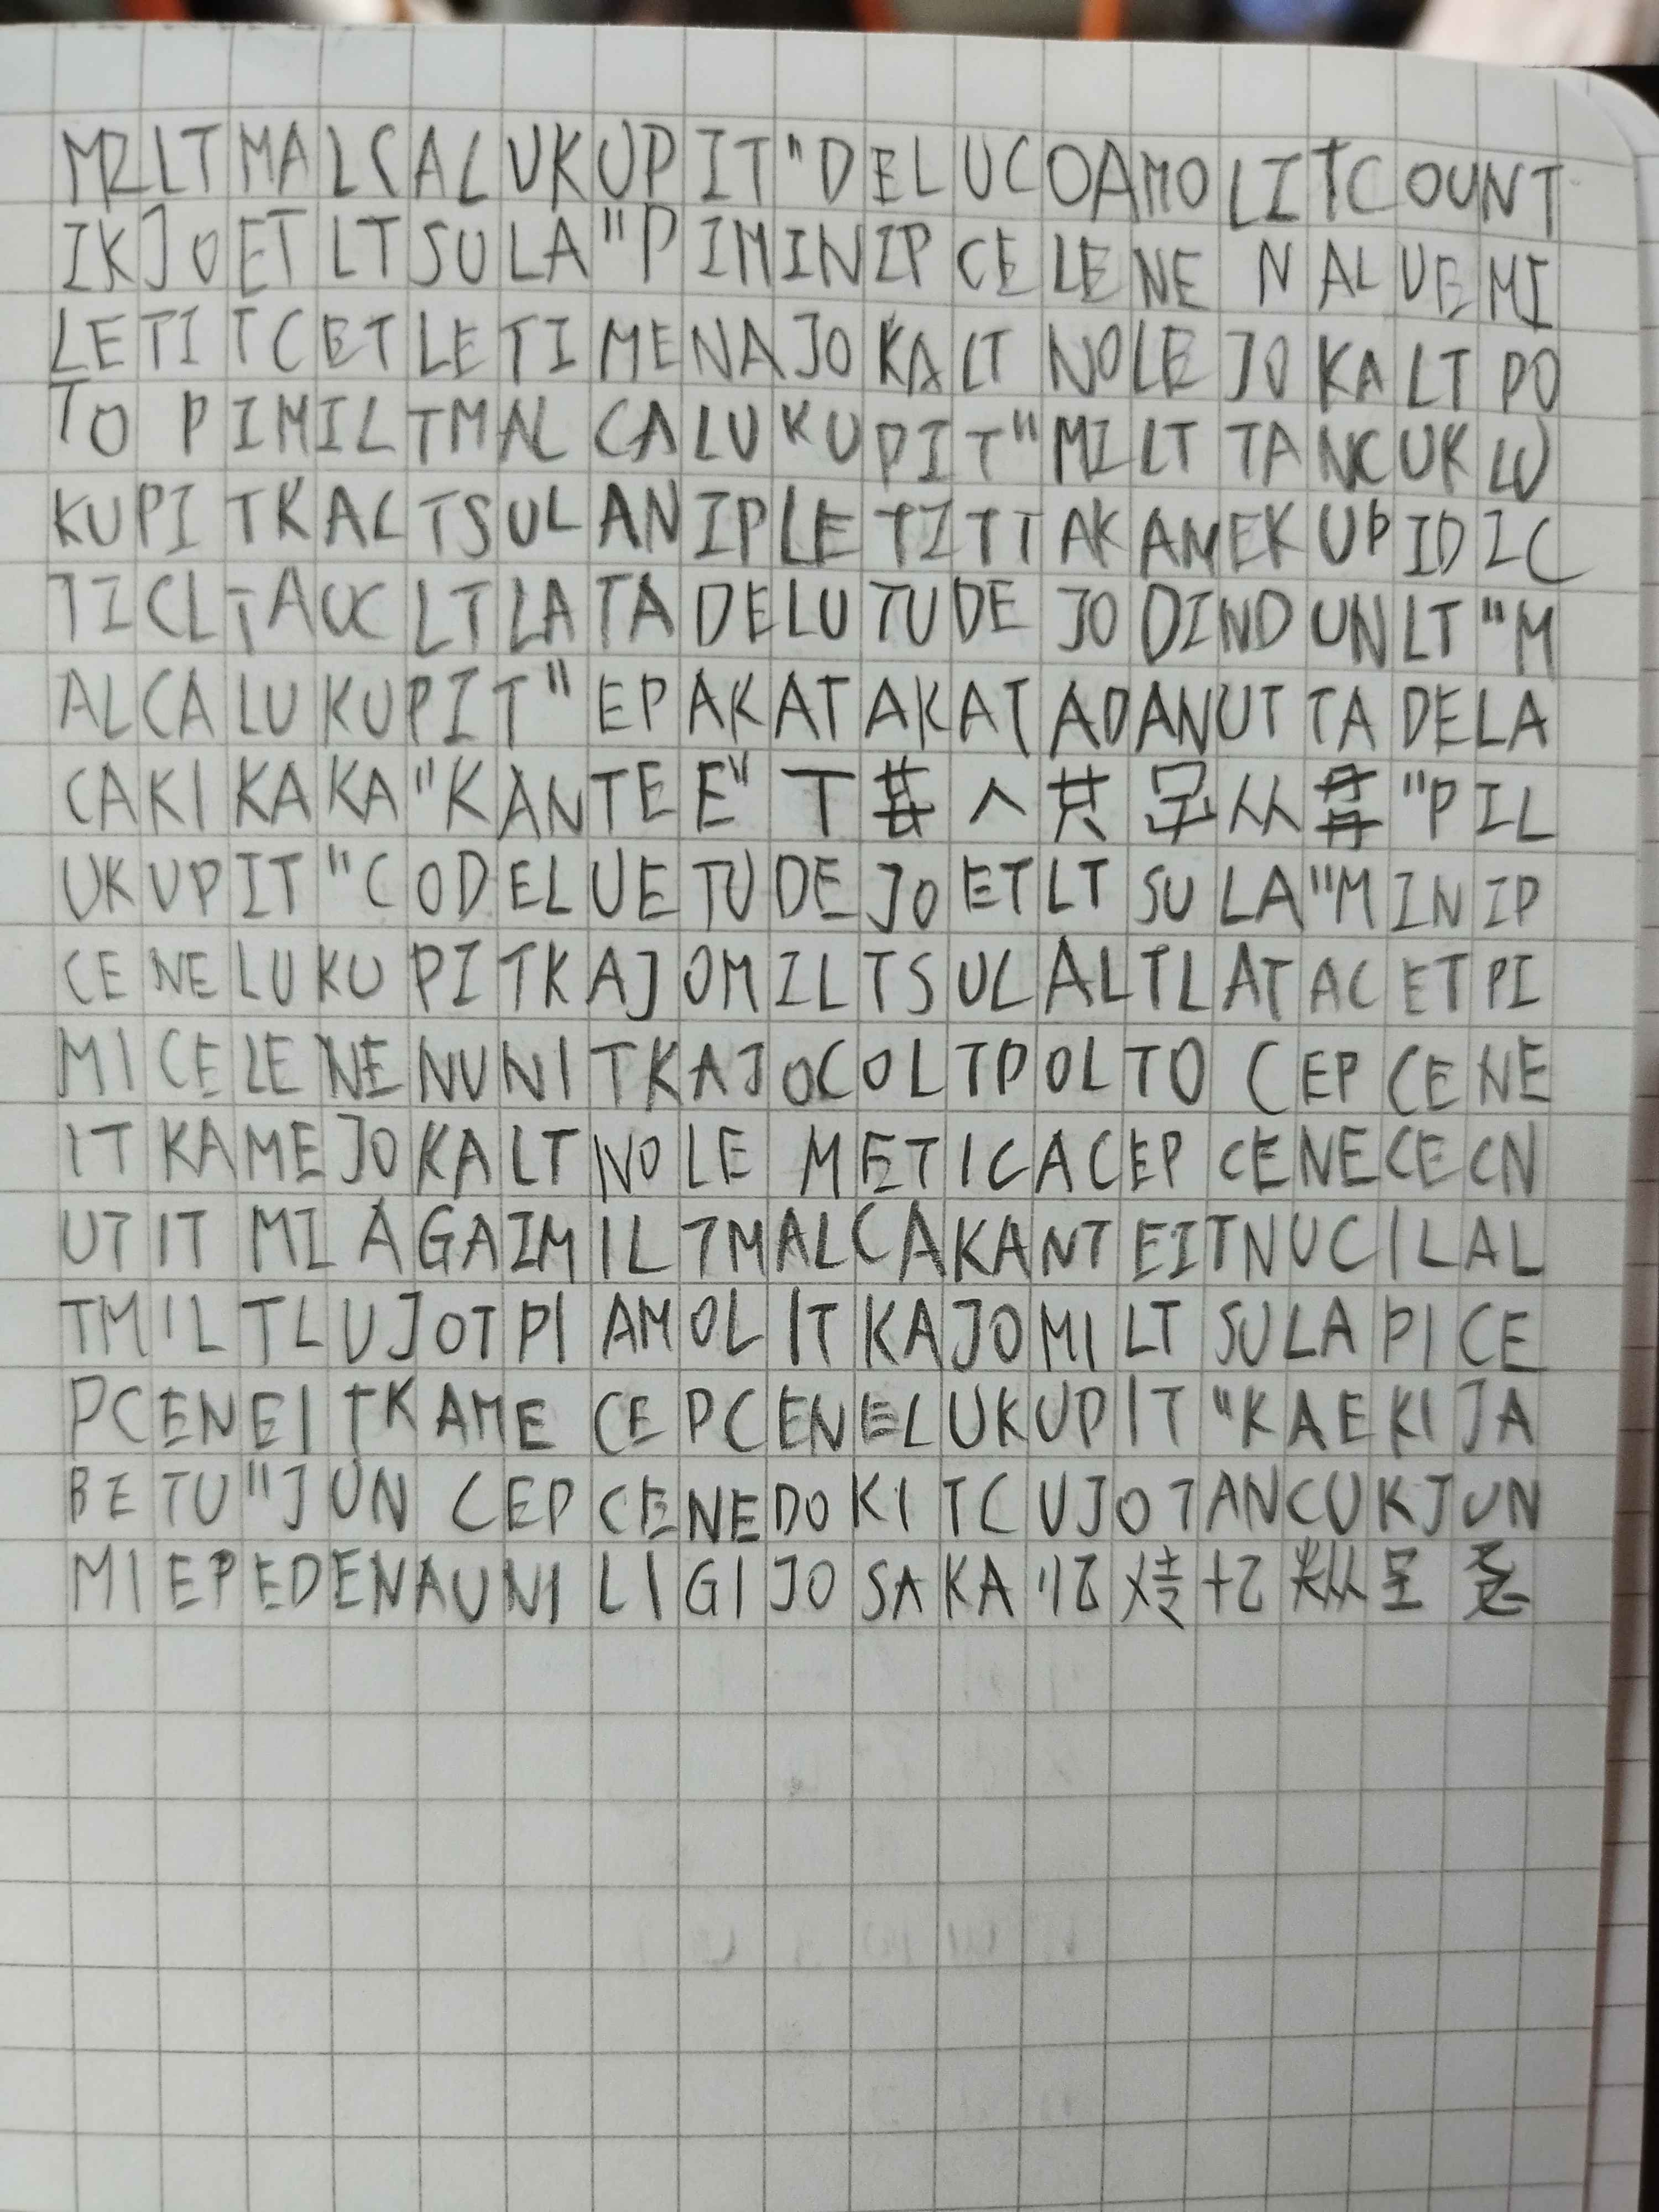 MILTMALCALUKUPIT"DELUCOAMOLITCOUNT
IKJOETLTSULA"PIMINIPCELENE NALUEMI
LETITCETLETIMENAJOKALT NOLE JOKALTPO
TO PIMILTMALCALUKUPIT"MILTTANCUKLU
KUPITKALTSULANIPLETITTAKAMEKUPIDIC
TICLTAUCLTLATADELUTUDE JODINDUNLT"M
ALCALUKUPIT"EPAKATAKATADANUTTADELA
CAKIKAKA"KANTEE" "PIL
UKUPIT"CODELUETUDEJOETLTSULA"MINIP
CENELUKUPITKAJOMILTSULALTLATACETPI
MICELENENUNITKAJOCOLTPOLTO CEPCENE
ITKAMEJOKALTNOLE METICACEPCENECECN
UTIT MIAGAIMILTMALCAKANTEITNUCILAL
TMILTLUJOTPIAMOLITKAJOMILTSULAPICE
PCENEITKAMECEPCENELUKUPIT"KAEKIJA
BETU"JUN CEPCENEDOKITCUJOTANCUKJUN
MIEPEDENAUNILIGIJOSAKA